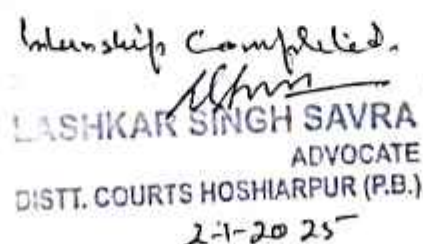 Internship Completed.
LASHKAR SINGH SAVRA
ADVOCATE
DISTT. COURTS HOSHIARPUR (P.B.)
2-1-2025